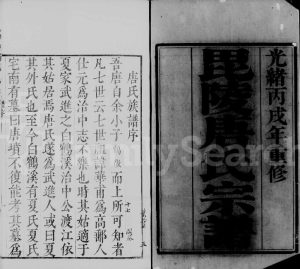 光緒丙戌年重修
毘陵唐氏宗譜
唐氏族譜序
吾唐自余小子而上所可知者
凡七世二七世為高郵人
仕元為治中志不樂也時其姑適于
夏家武進之白鶴溪治中公渡江依
其姑居焉唐氏遂為武進人或曰夏
其外氏也至今白鶴溪有夏氏夏氏
宅南有墓曰唐墳不復能考其墓為